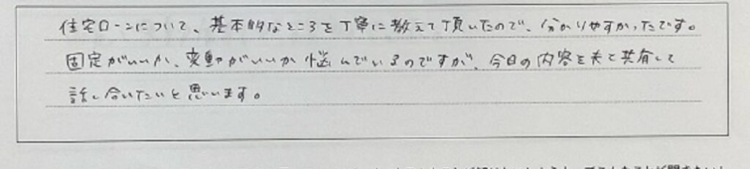 住宅ローンについて、基本的なところを丁寧に教えて頂いたので、分かりやすかったです。
固定がいいか、変動がいいか悩んでいるのですが、今日の内容を夫と共有して
話し合いたいと思います。